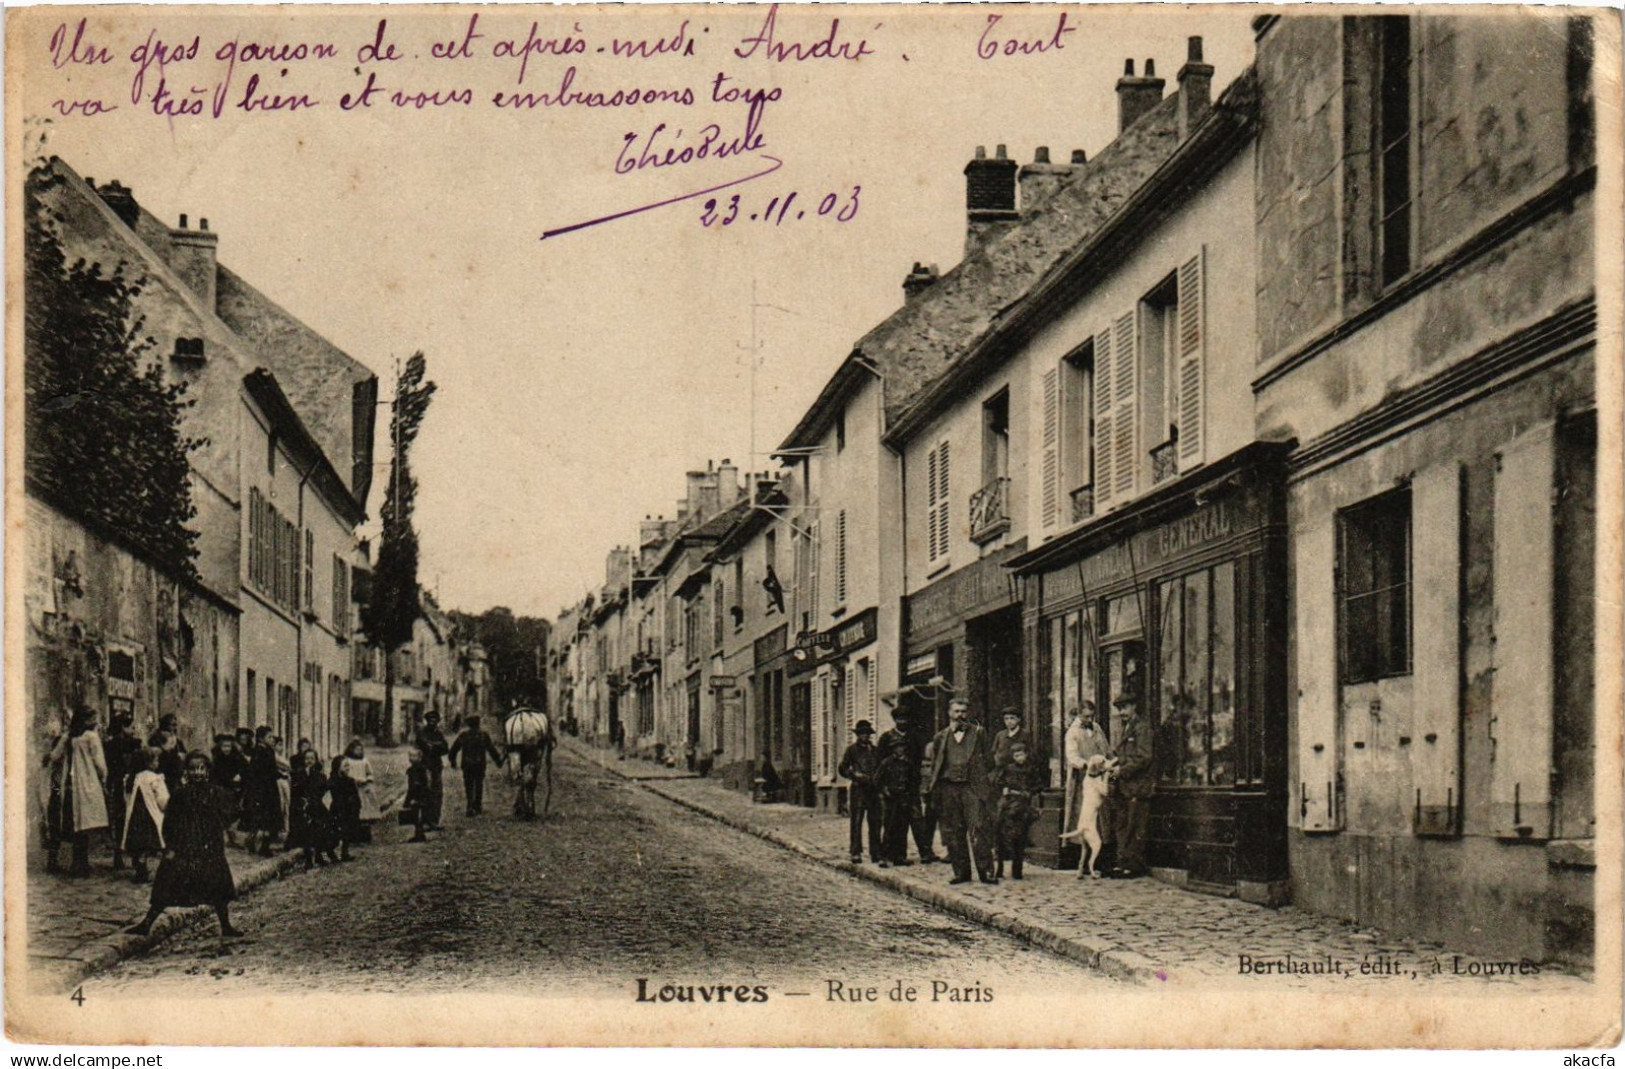 Un gros garcon de cet après-midi André. Tout
va très bien et vous embrassons tous
Théodule
23.11.03
GÉNÉRAL
Berthault, édit., à Louvres
4
Louvres — Rue de Paris
www.delcampe.net
akacfa